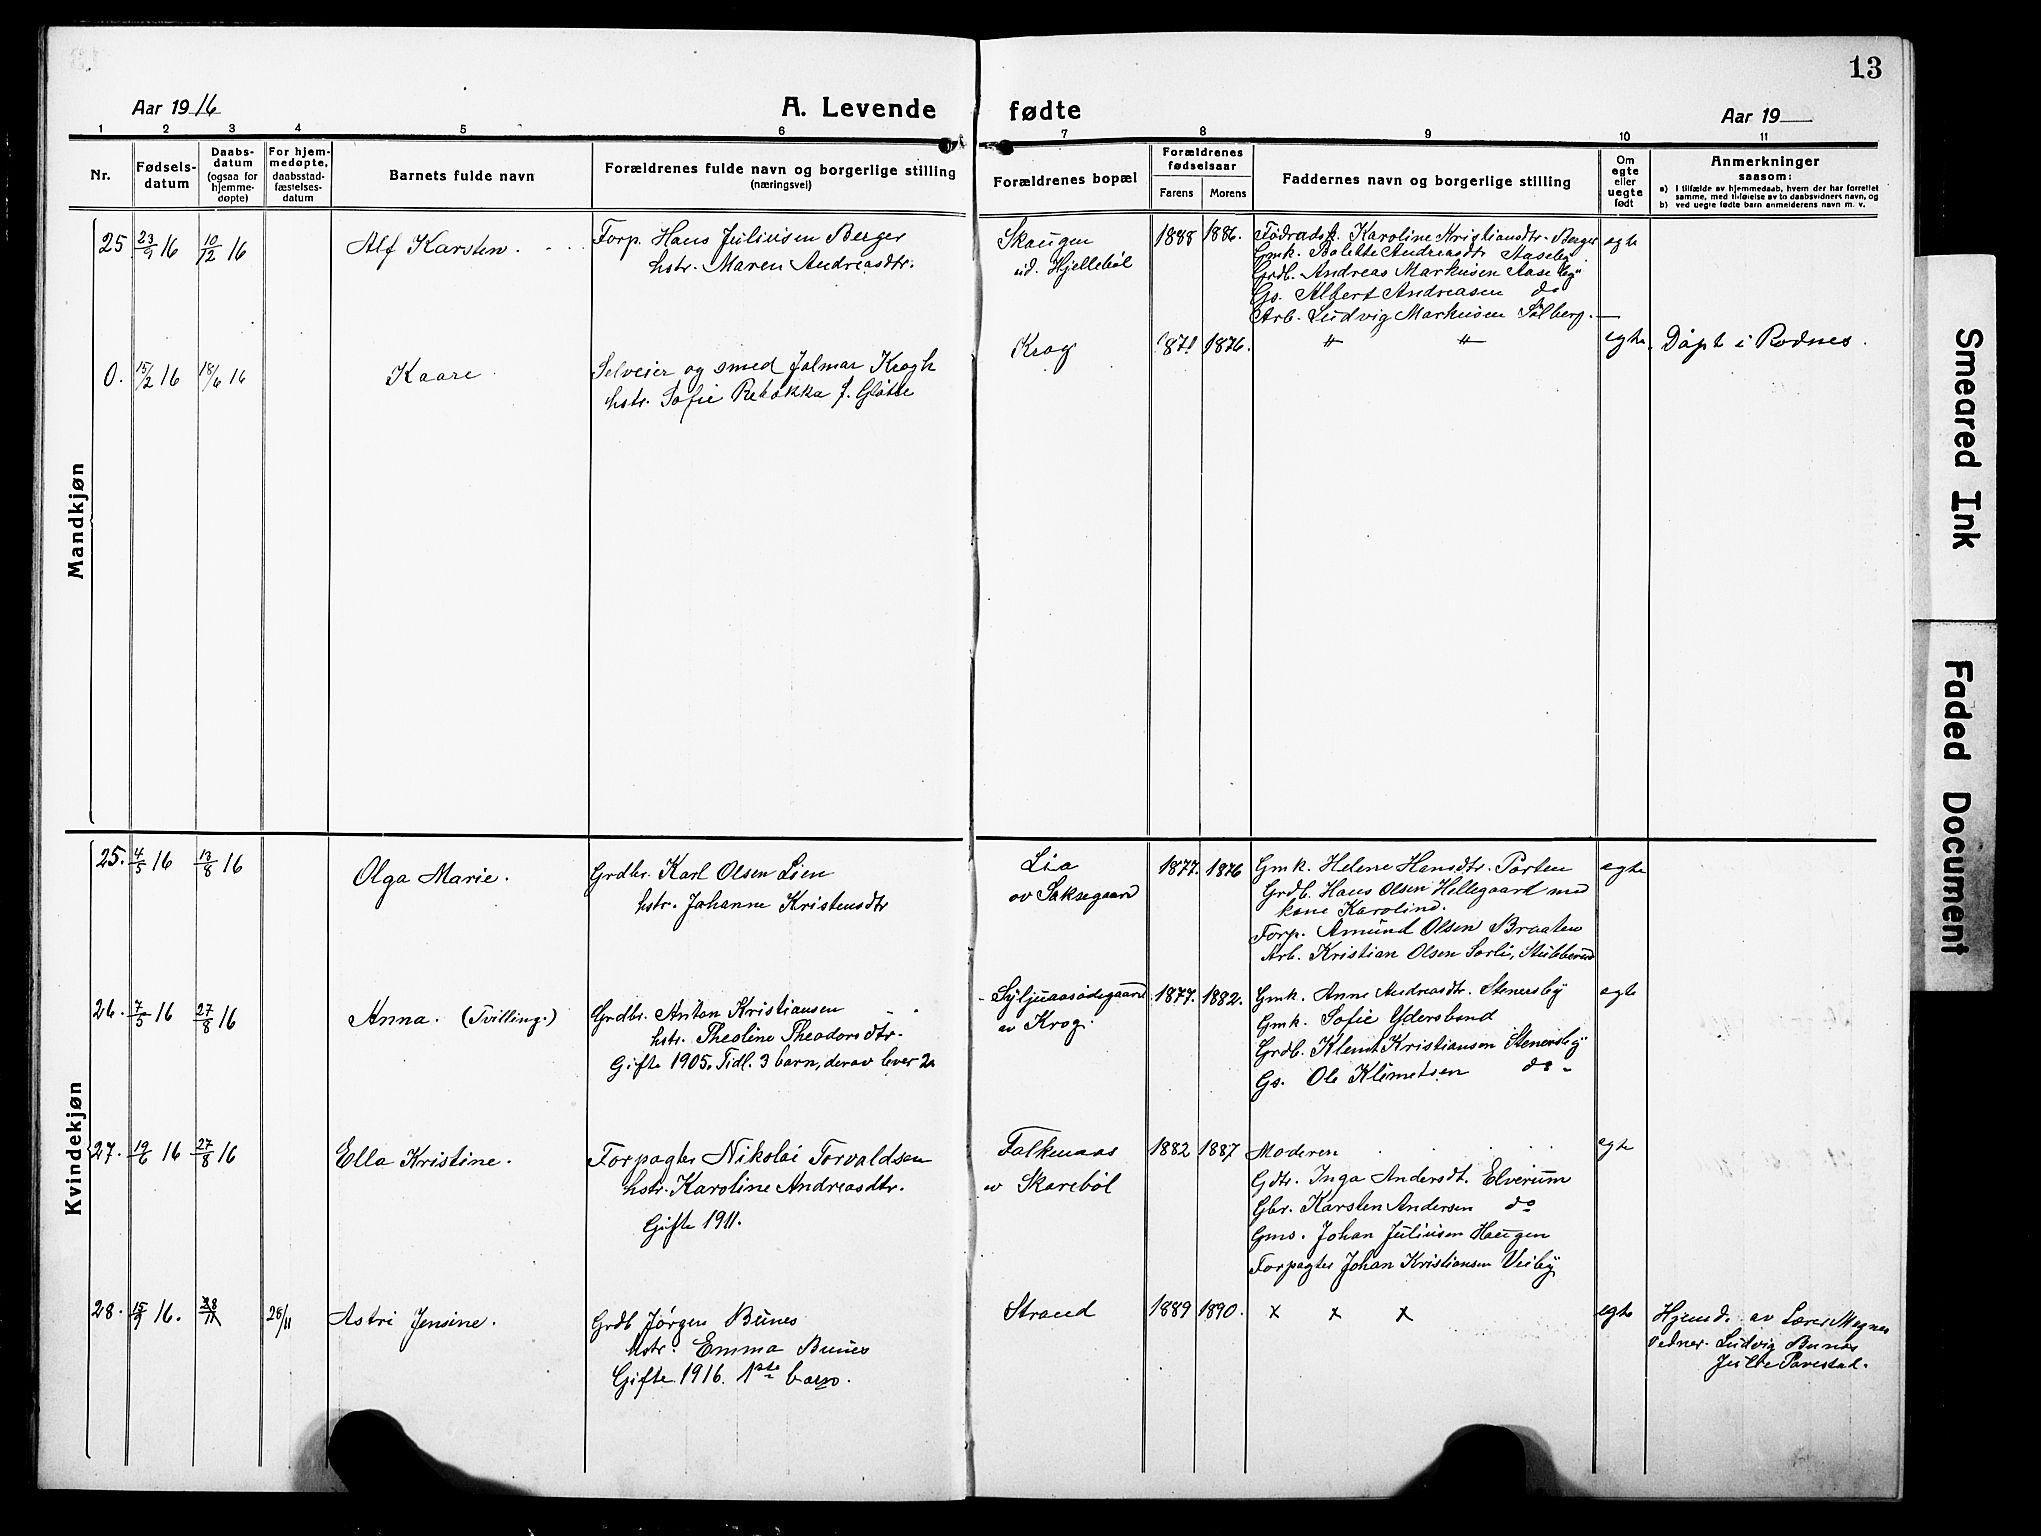 13
Aar 1916
A. Levende
fødte
Aar 19
1 2 3 4 5 6 7 8 9 10 11
Nr.
Fødsels-
datum
Daabs-
datum
(ogsaa for
hjemme-
døpte)
For hjem-
medøpte,
daabsstad-
fæstelses-
datum
Barnets fulde navn
Forældrenes fulde navn og borgerlige stilling
(næringsvei)
Forældrenes bopæl
Forældrenes
fødselsaar
Farens Morens
Faddernes navn og borgerlige stilling
Om
egte
eller
uegte
født
Anmerkninger
saasom:
a) I tilfælde av hjemmedaab, hvem der har forrettet
samme, med tilføielse av to daabsvidners navn, og
b) ved uegte fødte barn anmelderens navn m. v.
Mandkjøn
25 23/9 16 10/12 16 Alf Karsten.
Forp. Hans Juliusen Berger
hstr. Maren Andreasdtr.
Skaugen
ud. Hjellebøl
1888 1886.
Födradsk. Karoline Kristiansdtr. Berger
Gmk. Bolette Andreasdtr Aaseby
Grdb. Andreas Markusen Aaseby
Gs. Albert Andreasen do
Arb. Ludvig Markusen Solberg.
egte
0. 15/2 16 18/6 16 Kaare
Selveier og smed Jalmar Krogh
hstr. Sofie Rebekka f. Glötte
Krog
1871 1876.
" "
egte
Döpt i Rödnes.
Kvindekjøn
25. 4/5 16 13/8 16 Olga Marie.
Grdbr. Karl Olsen Lien
hstr. Johanne Kristensdtr
Lia
av Saksegaard
1877. 1876
Gmk. Helene Hansdtr. Porten
Grdb. Hans Olsen Hellegaard med
kone Karoline.
Forp. Amund Olsen Braaten
Arb. Kristian Olsen Sorli, Stubberud
egte
26. 7/5 16 27/8 16 Anna. (Tvilling.)
Grdbr. Anton Kristiansen
hstr. Theoline Theodorsdtr.
Gifte 1905. Tidl. 3 barn, derav lever 2
Syljuaasødegaard
av Krog.
1877. 1882.
Gmk. Anne Andreasdtr. Stenersby
Gmk. Sofie Ydersbond
Grdb. Klemt Kristiansen Stenersby
Gs. Ole Klemetsen do
egte
27. 19/6 16 27/8 16 Ella Kristine.
Forpagter Nikolai Torvaldsen
hstr. Karoline Andreasdtr.
Gifte 1911.
Falkenaas
av Skarebøl
1882 1887
Moderen
Gdtr. Inga Andersdt. Elverum
Gbr. Karsten Andersen do
Gms. Johan Juliusen Haugen
Forpagter Johan Kristiansen Veiby
egte
28. 15/9 16. 28/11 28/11 Astri Jensine.
Grdb Jørgen Bunes
Hstr. Emma Bunes
Gifte 1916. 1ste barn.
Strand
1889 1890.
x x x
egte
Hjemd. av Lærer Magnes
Vidner. Ludvig Bunes
Smeared Ink
Faded Document